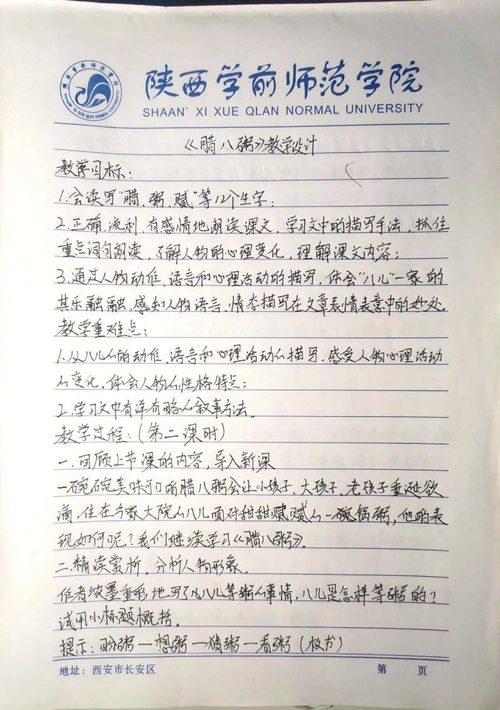 陕西学前师范学院
SHAAN' XI XUE QLAN NORMAL UNIVERSITY
《腊八粥》教学设计
教学目标:
1.会读写"腊、粥、腻"等12个生字;
2.正确、流利、有感情地朗读课文,学习文中的描写手法,抓住
重点词句朗读,了解人物的心理变化,理解课文内容;
3.通过人物动作、语言和心理活动的描写,体会"八儿"一家的
其乐融融,感知人物语言、情态描写在文章表情表意中的妙处。
教学重难点:
1.从八儿的动作、语言和心理活动的描写,感受人物心理活动
的变化,体会人物的性格特点;
2.学习文中有详有略的叙事方法。
教学过程:(第二课时)
一.回顾上节课的内容,导入新课
一碗碗美味可口的腊八粥会让小孩子、大孩子、老孩子垂涎欲
滴,住在大院的八儿面对甜甜腻腻的一锅粥,他的表
现如何呢?我们继续学习《腊八粥》。
二.精读赏析,分析人物形象。
作者浓墨重彩地写了八儿等粥的事情,八儿是怎样等粥的?
试用小标题概括。
提示:盼粥—想粥—猜粥—看粥(板书)
地址:西安市长安区
第 页